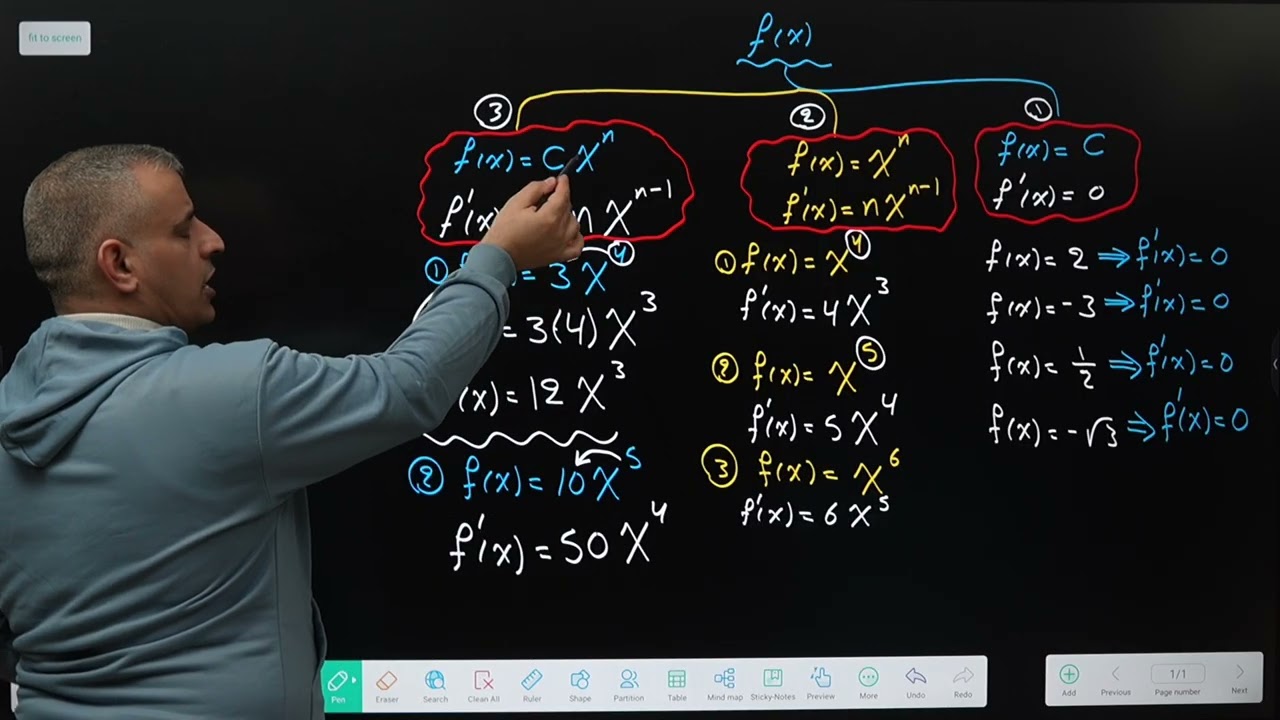 fit to screen
f(x)
③
f(x) = C X^n
f'(x) n X^{n-1}
① = 3 X^4
= 3(4) X^3
(x) = 12 X^3
② f(x) = 10 X^5
f'(x) = 50 X^4
②
f(x) = X^n
f'(x) = n X^{n-1}
① f(x) = X^4
f'(x) = 4 X^3
② f(x) = X^5
f'(x) = 5 X^4
③ f(x) = X^6
f'(x) = 6 X^5
①
f(x) = C
f'(x) = 0
f(x) = 2 ⇒ f'(x) = 0
f(x) = -3 ⇒ f'(x) = 0
f(x) = 1/2 ⇒ f'(x) = 0
f(x) = -√3 ⇒ f'(x) = 0
Pen Eraser Search Clean All Ruler Shape Partition Table Mind map Sticky-Notes Preview More Undo Redo
Add Previous 1/1 Page number Next